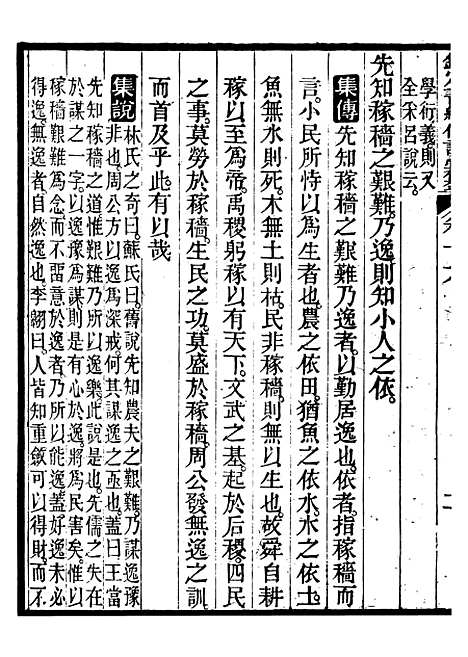 學衍義則又
全采呂說云。
先知稼穡之艱難。乃逸則知小人之依。
集傳 先知稼穡之艱難乃逸者。以勤居逸也。依者。指稼穡而
言。小民所恃以為生者也。農之依田。猶魚之依水。木之依土。
魚無水則死。木無土則枯。民非稼穡則無以生也。故舜自耕
稼以至為帝。禹稷躬稼以有天下。文武之基。起於后稷。四民
之事。莫勞於稼穡。生民之功。莫盛於稼穡。周公發無逸之訓。
而首及乎此。有以哉
集說 林氏之奇曰。蘇氏曰。舊說先知農夫之艱難。乃謀逸豫
非也。周公方以逸為深戒。何其謀逸之亟也。蓋曰王當
先知稼穡之道惟艱難乃所以逸樂。此說是也。先儒之失在
於謀之一字。以逸豫為謀則是有心於逸。將為民害矣。惟以
稼穡艱難為念。而不留意於逸者。乃所以能逸。蓋好逸未必
得逸。無逸者。自然逸也。李翱曰。人皆知重斂可以得財。而不